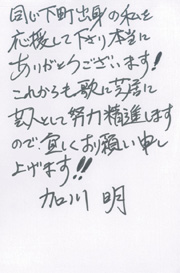 同じ下町出身の私を
応援して下さり本当に
ありがとうございます!
これからも歌に芝居に
芸人として努力精進します
ので、宜しくお願い申し
上げます!!
加川 明